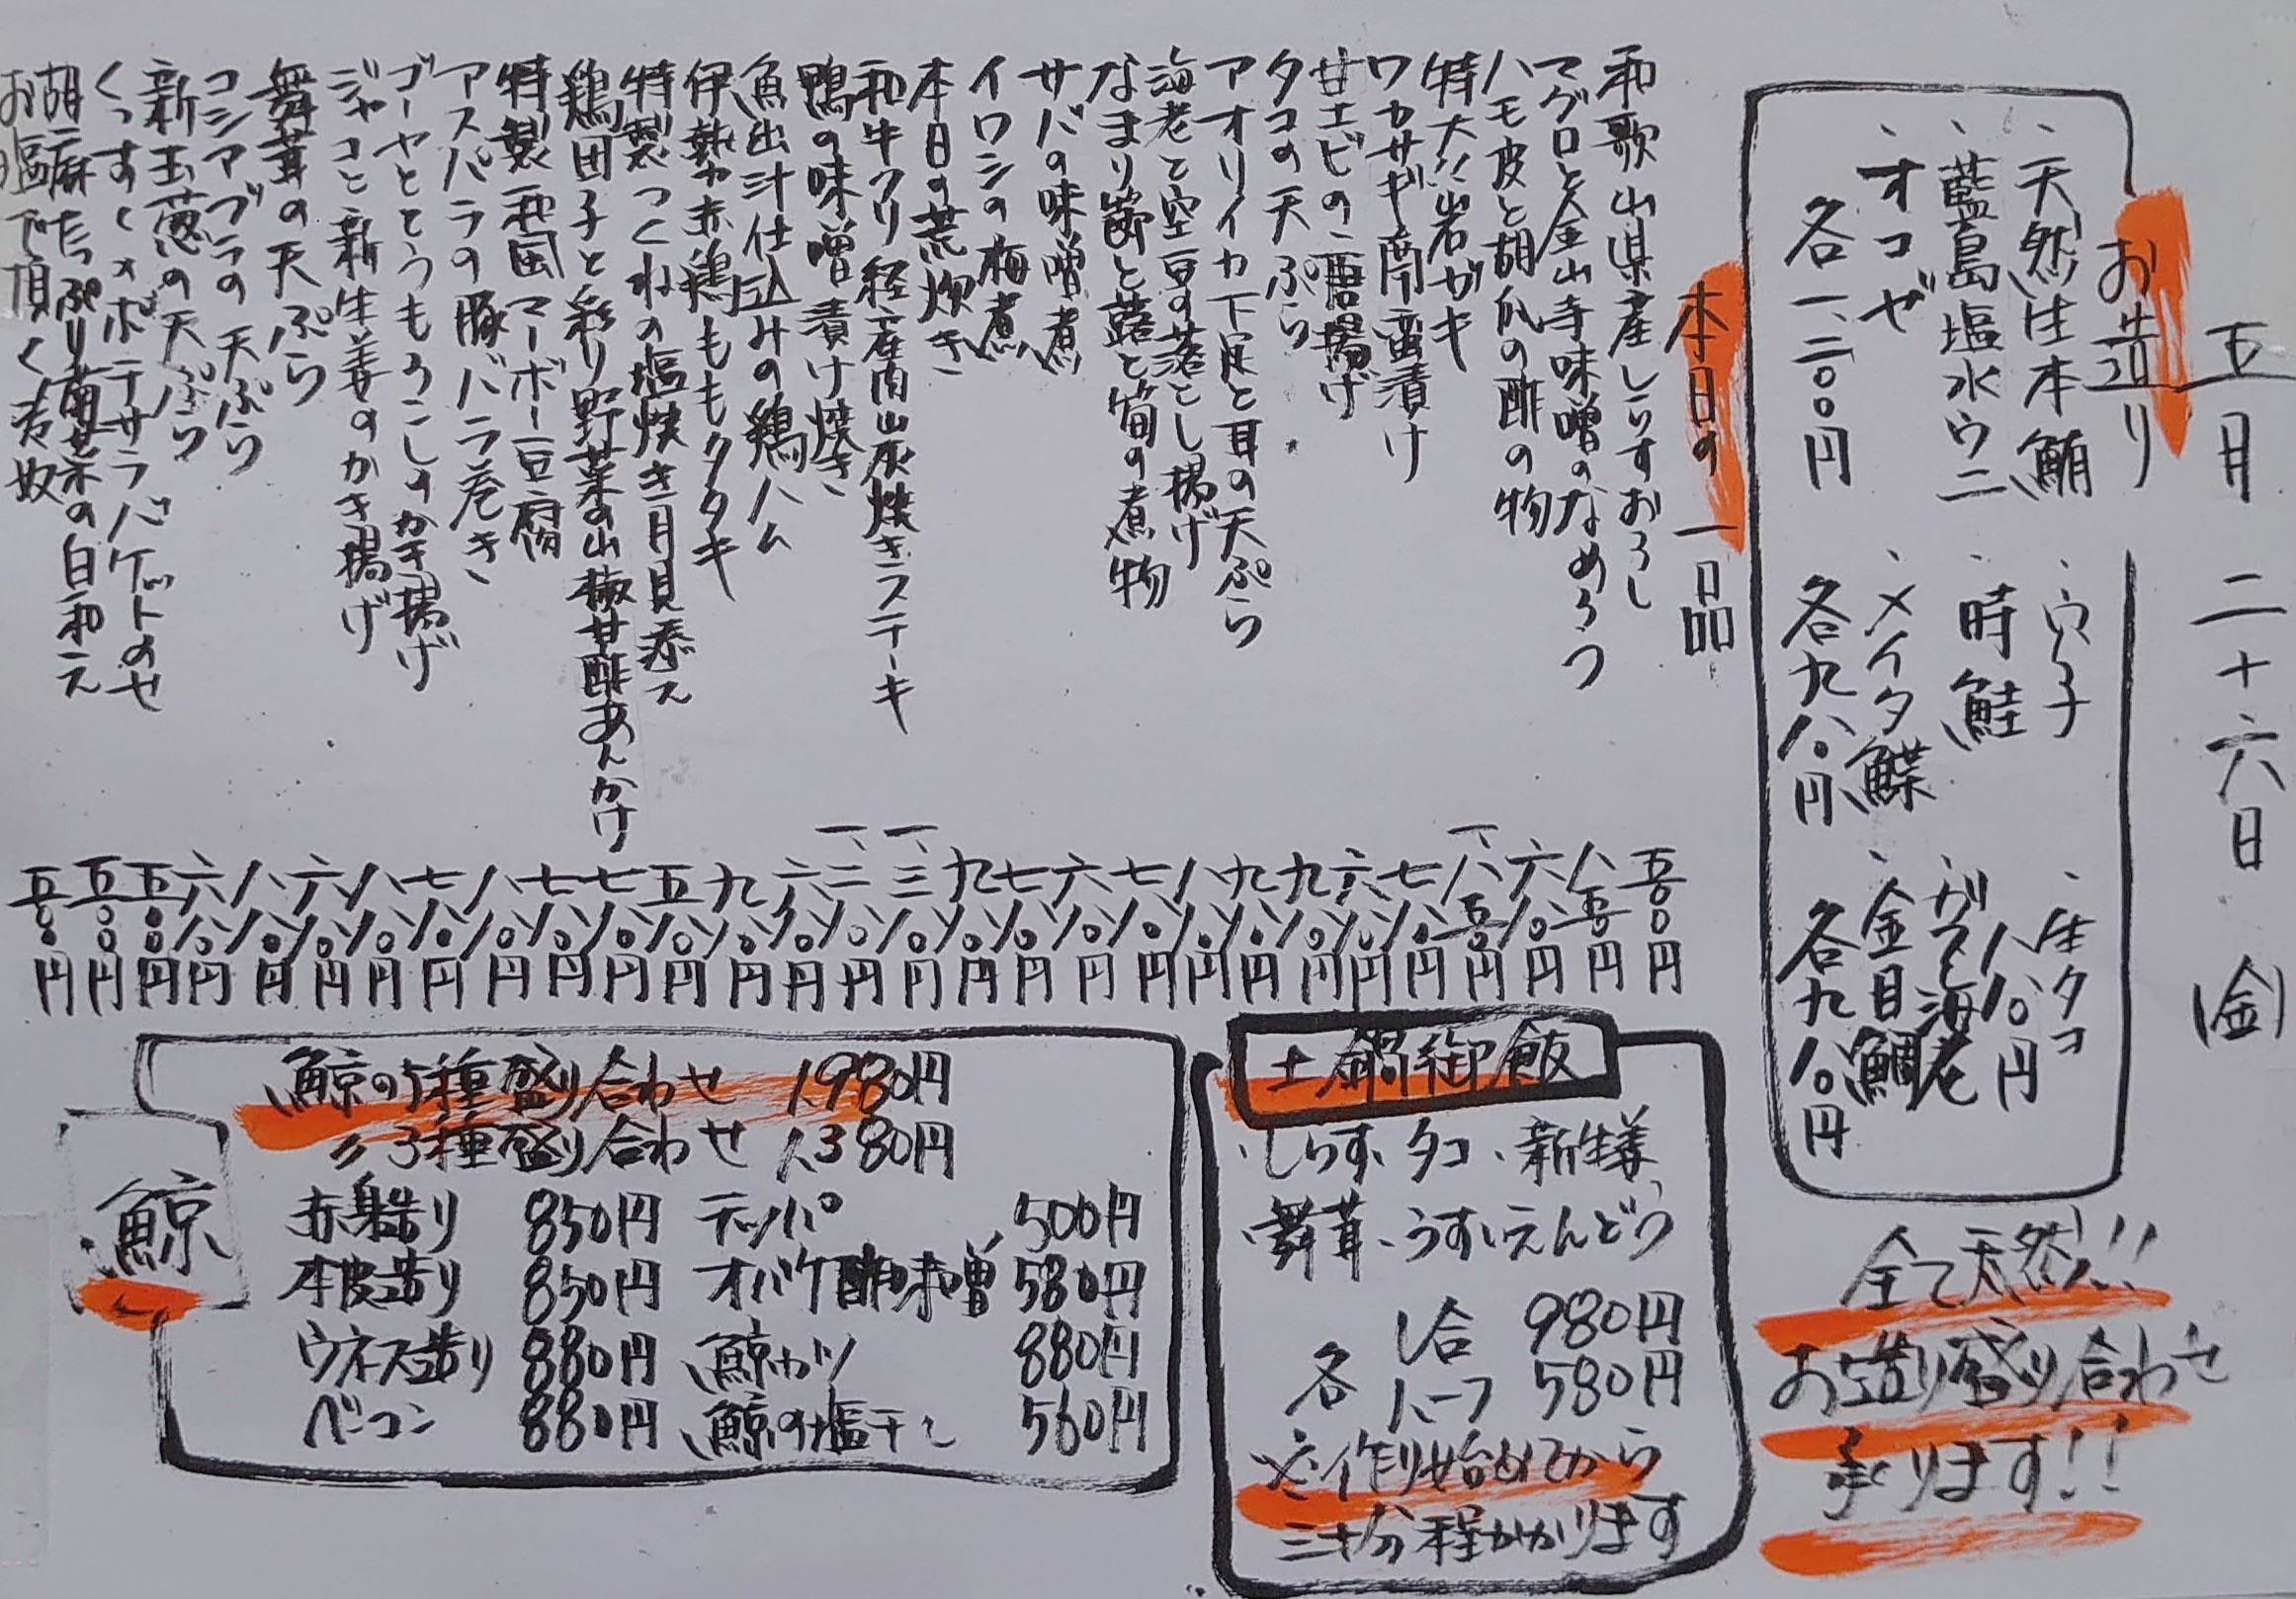 五月二十六日(金)
お造り
、天然生本鮪
、藍島塩水ウニ
、オコゼ
各一、二〇〇円
、穴子
、時鮭
、メイタ鰈
各九八〇円
、生タコ
八八〇円
、ガスエビ海老
、金目鯛
各九八〇円
全て天然!!
お造り盛り合わせ
承ります!!
本日の一品
和歌山県産しらすおろし 五〇〇円
マグロと金山寺味噌のなめろう 八五〇円
ハモ皮と胡瓜の酢の物 六八〇円
特大!!岩ガキ 一、八五〇円
ワカサギ南蛮漬け 七八〇円
甘エビの唐揚げ 六八〇円
タコの天ぷら 九八〇円
アオリイカ下足と耳の天ぷら 九八〇円
海老と空豆の落とし揚げ 八八〇円
なまり節と蕗と筍の煮物 七八〇円
サバの味噌煮 六八〇円
イワシの梅煮 七八〇円
本日の荒炊き 九八〇円
和牛クリ 経産肉山炭焼きステーキ 一、三八〇円
鴨の味噌漬け焼き 一、二八〇円
魚出汁仕込みの鶏ハム 六八〇円
伊勢赤鶏ももタタキ 九八〇円
特製つくねの塩焼き 月見添え 五八〇円
鶏団子と彩り野菜の山椒甘酢あんかけ 七八〇円
特製和風マーボー豆腐 七八〇円
アスパラの豚バラ巻き 八八〇円
ゴーヤととうもろこしのかき揚げ 七八〇円
ジャコと新生姜のかき揚げ 八八〇円
舞茸の天ぷら 六八〇円
コシアブラの天ぷら 八八〇円
新玉葱の天ぷら 六八〇円
くんすくんポテサラバケットのせ 五八〇円
胡麻たっぷり菊菜の白和え 五〇〇円
お塩で頂く冷奴 五〇〇円
土鍋御飯
・しらす、タコ、新生姜、
・舞茸、うすいえんどう
各 1合 980円
ハーフ 580円
※作り始めてから
三十分程かかります
鯨
鯨の5種盛り合わせ 1,980円
〃3種盛り合わせ 1,380円
赤身造り 850円 テッパ 500円
本皮造り 850円 オバケ酢味噌 580円
ウネス造り 880円 鯨カツ 880円
ベーコン 880円 鯨の塩干し 560円